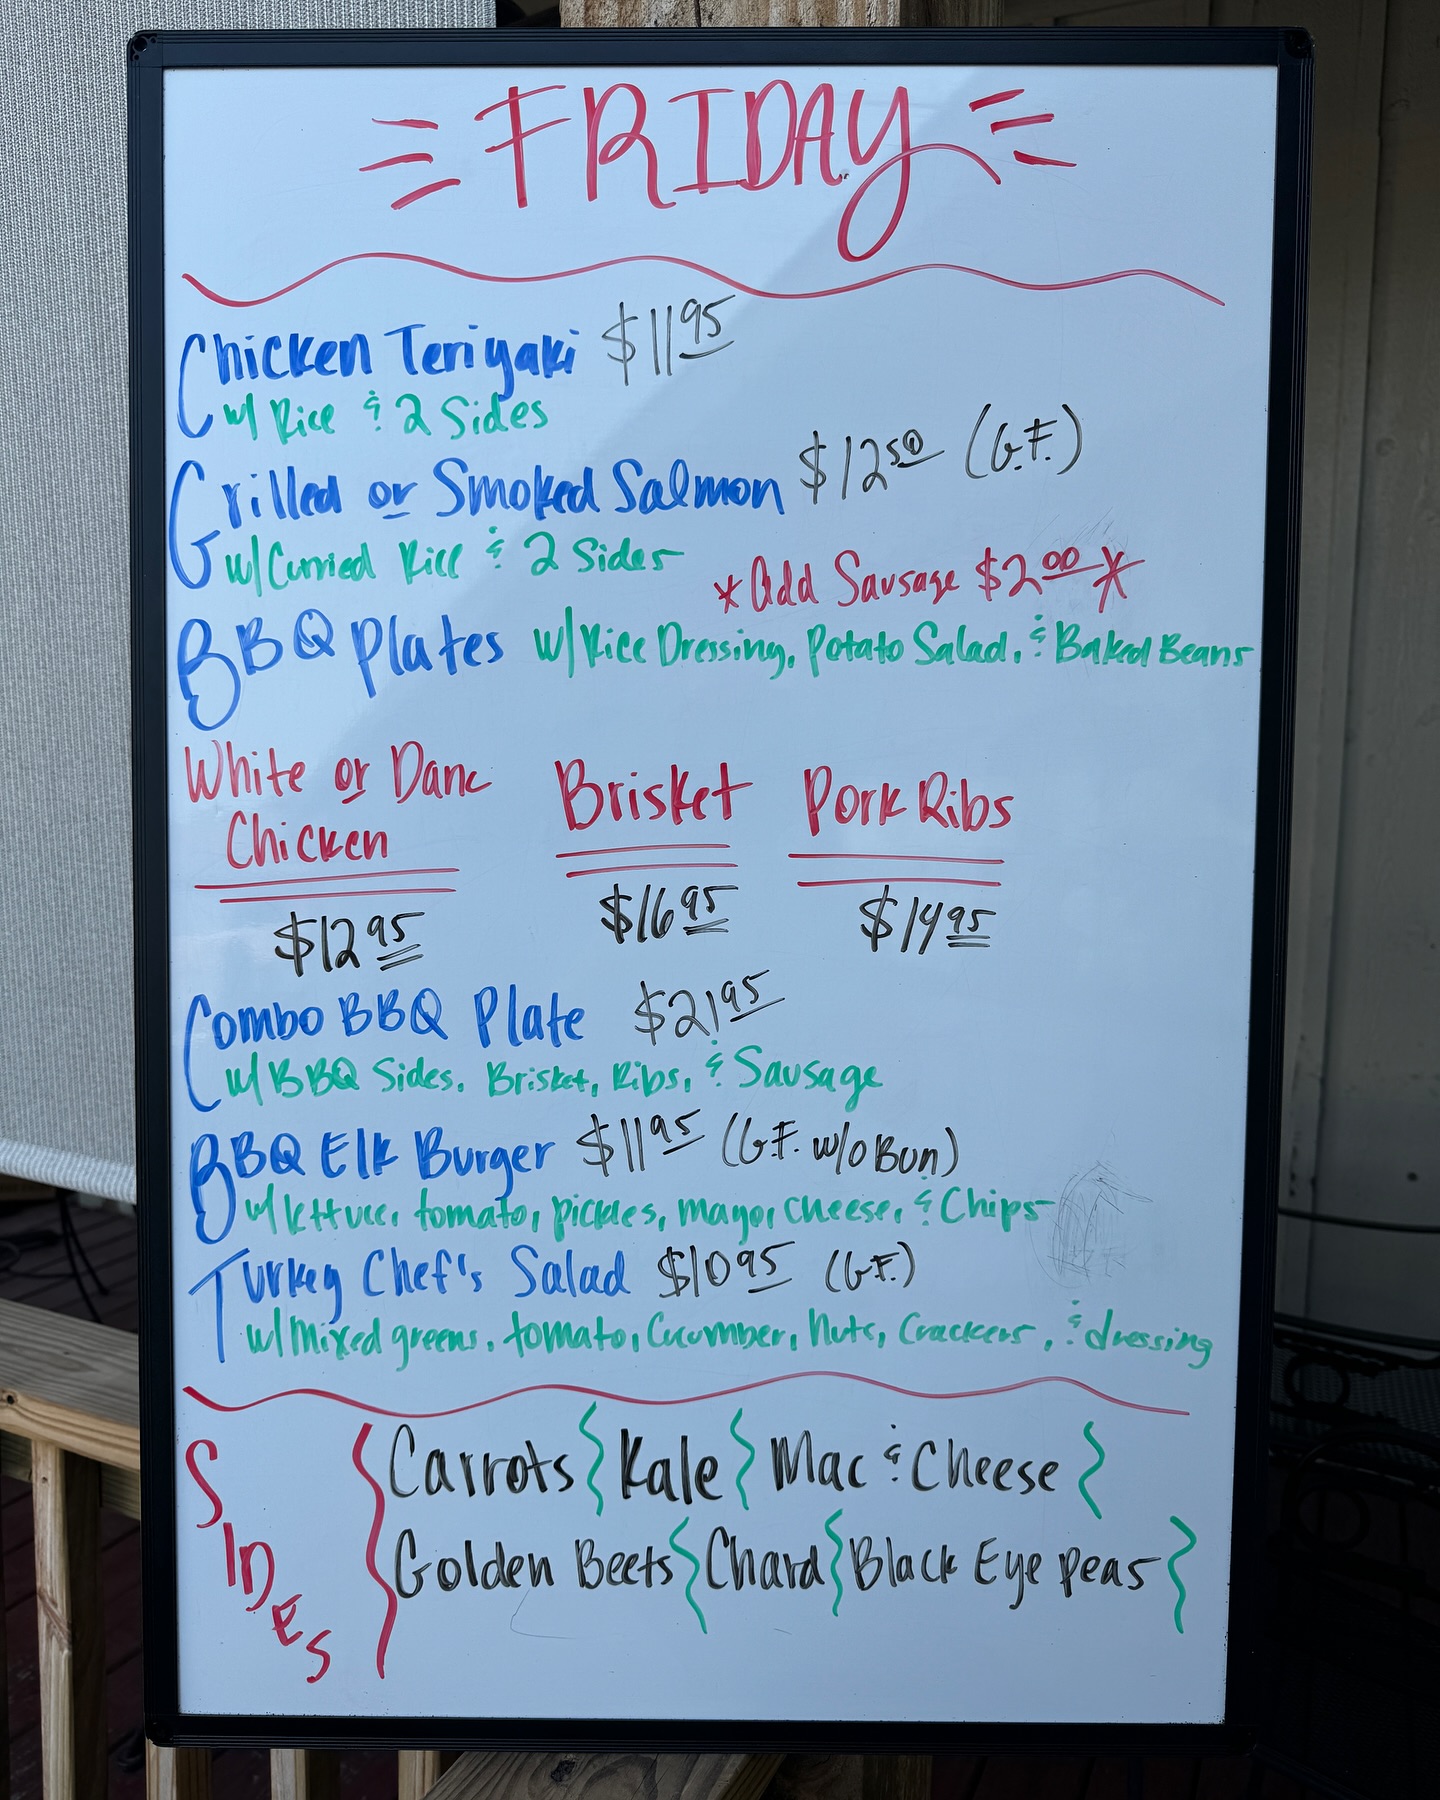 FRIDAY
Chicken Teriyaki $11.95
w/ Rice & 2 Sides
Grilled or Smoked Salmon $12.50 (G.F.)
w/ Curried Rice & 2 Sides
*Add Sausage $2.00*
BBQ Plates w/ Rice Dressing, Potato Salad, & Baked Beans
White or Dark Brisket Pork Ribs
Chicken
$12.95 $16.95 $14.95
Combo BBQ Plate $21.95
w/ BBQ Sides, Brisket, Ribs, & Sausage
BBQ Elk Burger $11.95 (G.F. w/o Bun)
w/ lettuce, tomato, pickles, mayo, cheese, & Chips
Turkey Chef's Salad $10.95 (G.F.)
w/ mixed greens, tomato, Cucumber, Nuts, Crackers, & dressing
SIDES
Carrots Kale Mac & Cheese
Golden Beets Chard Black Eye Peas